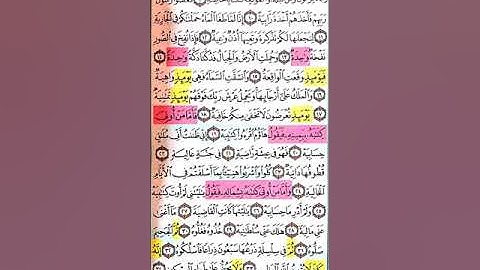 رَبِّهِمْ فَأَخَذَهُمْ أَخْذَةً رَّابِيَةً ١٠ إِنَّا لَمَّا طَغَا ٱلْمَآءُ حَمَلْنَٰكُمْ فِى ٱلْجَارِيَةِ
١١ لِنَجْعَلَهَا لَكُمْ تَذْكِرَةً وَتَعِيَهَآ أُذُنٌ وَٰعِيَةٌ ١٢ فَإِذَا نُفِخَ فِى ٱلصُّورِ
نَفْخَةٌ وَٰحِدَةٌ ١٣ وَحُمِلَتِ ٱلْأَرْضُ وَٱلْجِبَالُ فَدُكَّتَا دَكَّةً وَٰحِدَةً ١٤
فَيَوْمَئِذٍ وَقَعَتِ ٱلْوَاقِعَةُ ١٥ وَٱنشَقَّتِ ٱلسَّمَآءُ فَهِىَ يَوْمَئِذٍ وَاهِيَةٌ
١٦ وَٱلْمَلَكُ عَلَىٰٓ أَرْجَآئِهَا وَيَحْمِلُ عَرْشَ رَبِّكَ فَوْقَهُمْ يَوْمَئِذٍ ثَمَٰنِيَةٌ
١٧ يَوْمَئِذٍ تُعْرَضُونَ لَا تَخْفَىٰ مِنكُمْ خَافِيَةٌ ١٨ فَأَمَّا مَنْ أُوتِىَ
كِتَٰبَهُۥ بِيَمِينِهِۦ فَيَقُولُ هَآؤُمُ ٱقْرَءُوا۟ كِتَٰبِيَهْ ١٩ إِنِّى ظَنَنتُ أَنِّى مُلَٰقٍ
حِسَابِيَهْ ٢٠ فَهُوَ فِى عِيشَةٍ رَّاضِيَةٍ ٢١ فِى جَنَّةٍ عَالِيَةٍ ٢٢
قُطُوفُهَا دَانِيَةٌ ٢٣ كُلُوا۟ وَٱشْرَبُوا۟ هَنِيٓـًٔۢا بِمَآ أَسْلَفْتُمْ فِى ٱلْأَيَّامِ
ٱلْخَالِيَةِ ٢٤ وَأَمَّا مَنْ أُوتِىَ كِتَٰبَهُۥ بِشِمَالِهِۦ فَيَقُولُ يَٰلَيْتَنِى لَمْ أُوتَ كِتَٰبِيَهْ
٢٥ وَلَمْ أَدْرِ مَا حِسَابِيَهْ ٢٦ يَٰلَيْتَهَا كَانَتِ ٱلْقَاضِيَةَ ٢٧ مَآ أَغْنَىٰ
عَنِّى مَالِيَهْ ٢٨ هَلَكَ عَنِّى سُلْطَٰنِيَهْ ٢٩ خُذُوهُ فَغُلُّوهُ ٣٠ ثُمَّ ٱلْجَحِيمَ
صَلُّوهُ ٣١ ثُمَّ فِى سِلْسِلَةٍ ذَرْعُهَا سَبْعُونَ ذِرَاعًا فَٱسْلُكُوهُ ٣٢ إِنَّهُۥ